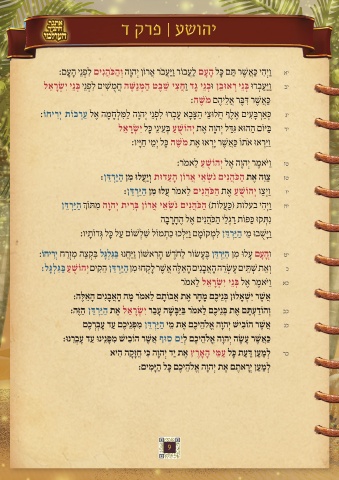 יהושע | פרק ד
יא וַיְהִי כַּאֲשֶׁר תַּם כָּל הָעָם לַעֲבוֹר וַיַּעֲבֹר אֲרוֹן יְהוָה וְהַכֹּהֲנִים לִפְנֵי הָעָם:
יב וַיַּעַבְרוּ בְּנֵי רְאוּבֵן וּבְנֵי גָד וַחֲצִי שֵׁבֶט הַמְנַשֶּׁה חֲמֻשִׁים לִפְנֵי בְּנֵי יִשְׂרָאֵל
כַּאֲשֶׁר דִּבֶּר אֲלֵיהֶם מֹשֶׁה:
יג כְּאַרְבָּעִים אֶלֶף חֲלוּצֵי הַצָּבָא עָבְרוּ לִפְנֵי יְהוָה לַמִּלְחָמָה אֶל עַרְבוֹת יְרִיחוֹ:
יד בַּיּוֹם הַהוּא גִּדַּל יְהוָה אֶת יְהוֹשֻׁעַ בְּעֵינֵי כָּל יִשְׂרָאֵל
וַיִּרְאוּ אֹתוֹ כַּאֲשֶׁר יָרְאוּ אֶת מֹשֶׁה כָּל יְמֵי חַיָּיו:
טו וַיֹּאמֶר יְהוָה אֶל יְהוֹשֻׁעַ לֵאמֹר:
טז צַוֵּה אֶת הַכֹּהֲנִים נֹשְׂאֵי אֲרוֹן הָעֵדוּת וְיַעֲלוּ מִן הַיַּרְדֵּן:
יז וַיְצַו יְהוֹשֻׁעַ אֶת הַכֹּהֲנִים לֵאמֹר עֲלוּ מִן הַיַּרְדֵּן:
יח וַיְהִי בעלות (כַּעֲלוֹת) הַכֹּהֲנִים נֹשְׂאֵי אֲרוֹן בְּרִית יְהוָה מִתּוֹךְ הַיַּרְדֵּן
נִתְּקוּ כַּפּוֹת רַגְלֵי הַכֹּהֲנִים אֶל הֶחָרָבָה
וַיָּשֻׁבוּ מֵי הַיַּרְדֵּן לִמְקוֹמָם וַיֵּלְכוּ כִתְמוֹל שִׁלְשׁוֹם עַל כָּל גְּדוֹתָיו:
יט וְהָעָם עָלוּ מִן הַיַּרְדֵּן בֶּעָשׂוֹר לַחֹדֶשׁ הָרִאשׁוֹן וַיַּחֲנוּ בַּגִּלְגָּל בִּקְצֵה מִזְרַח יְרִיחוֹ:
כ וְאֵת שְׁתֵּים עֶשְׂרֵה הָאֲבָנִים הָאֵלֶּה אֲשֶׁר לָקְחוּ מִן הַיַּרְדֵּן הֵקִים יְהוֹשֻׁעַ בַּגִּלְגָּל:
כא וַיֹּאמֶר אֶל בְּנֵי יִשְׂרָאֵל לֵאמֹר
אֲשֶׁר יִשְׁאָלוּן בְּנֵיכֶם מָחָר אֶת אֲבוֹתָם לֵאמֹר מָה הָאֲבָנִים הָאֵלֶּה:
כב וְהוֹדַעְתֶּם אֶת בְּנֵיכֶם לֵאמֹר בַּיַּבָּשָׁה עָבַר יִשְׂרָאֵל אֶת הַיַּרְדֵּן הַזֶּה:
כג אֲשֶׁר הוֹבִישׁ יְהוָה אֱלֹהֵיכֶם אֶת מֵי הַיַּרְדֵּן מִפְּנֵיכֶם עַד עָבְרְכֶם
כַּאֲשֶׁר עָשָׂה יְהוָה אֱלֹהֵיכֶם לְיַם סוּף אֲשֶׁר הוֹבִישׁ מִפָּנֵינוּ עַד עָבְרֵנוּ:
כד לְמַעַן דַּעַת כָּל עַמֵּי הָאָרֶץ אֶת יַד יְהוָה כִּי חֲזָקָה הִיא
לְמַעַן יְרָאתֶם אֶת יְהוָה אֱלֹהֵיכֶם כָּל הַיָּמִים: